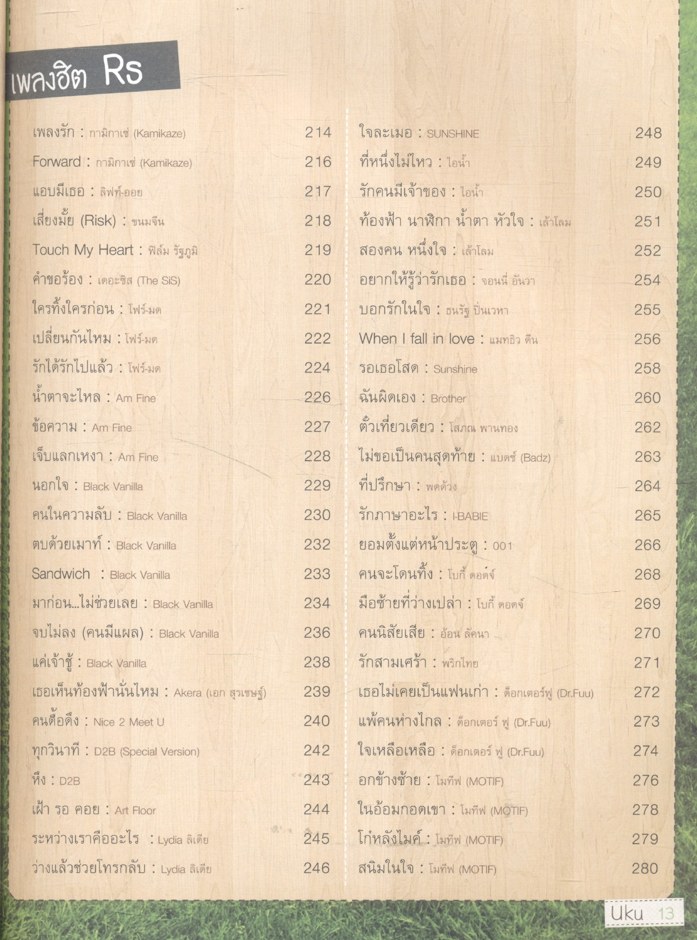 เพลงฮิต Rs
เพลงรัก : กามิกาเซ่ (Kamikaze) 214
Forward : กามิกาเซ่ (Kamikaze) 216
แอบมีเธอ : ลิฟท์-ออย 217
เสี่ยงมั้ย (Risk) : ขนมจีน 218
Touch My Heart : ฟิล์ม รัฐภูมิ 219
คำขอร้อง : เดอะซิส (The SiS) 220
ใครทิ้งใครก่อน : โฟร์-มด 221
เปลี่ยนกันไหม : โฟร์-มด 222
รักได้รักไปแล้ว : โฟร์-มด 224
น้ำตาจะไหล : Am Fine 226
ข้อความ : Am Fine 227
เจ็บแลกเหงา : Am Fine 228
นอกใจ : Black Vanilla 229
คนในความลับ : Black Vanilla 230
ตบด้วยเมาท์ : Black Vanilla 232
Sandwich : Black Vanilla 233
มาก่อน...ไม่ช่วยเลย : Black Vanilla 234
จบไม่ลง (คนมีแผล) : Black Vanilla 236
แค่เจ้าชู้ : Black Vanilla 238
เธอเห็นท้องฟ้านั่นไหม : Akera (เอก สุระเชษฐ์) 239
คนดื้อดึง : Nice 2 Meet U 240
ทุกวินาที : D2B (Special Version) 242
หึง : D2B 243
เฝ้า รอ คอย : Art Floor 244
ระหว่างเราคืออะไร : Lydia ลิเดีย 245
ว่างแล้วช่วยโทรกลับ : Lydia ลิเดีย 246
ใจละเมอ : SUNSHINE 248
ที่หนึ่งไม่ไหว : ไอน้ำ 249
รักคนมีเจ้าของ : ไอน้ำ 250
ท้องฟ้า นาฬิกา น้ำตา หัวใจ : เล้าโลม 251
สองคน หนึ่งใจ : เล้าโลม 252
อยากให้รู้ว่ารักเธอ : จอนนี่ อันวา 254
บอกรักในใจ : ธนรัฐ ปิ่นเวหา 255
When I fall in love : แมทธิว ดีน 256
รอเธอโสด : Sunshine 258
ฉันผิดเอง : Brother 260
ตั๋วเที่ยวเดียว : โสภณ พานทอง 262
ไม่ขอเป็นคนสุดท้าย : แบดซ์ (Badz) 263
ที่ปรึกษา : พดด้วง 264
รักภาษาอะไร : I-BABIE 265
ยอมตั้งแต่หน้าประตู : 001 266
คนจะโดนทิ้ง : โบกี้ ดอตจ์ 268
มือซ้ายที่ว่างเปล่า : โบกี้ ดอตจ์ 269
คนนิสัยเสีย : อ้อน ลัคนา 270
รักสามเศร้า : พริกไทย 271
เธอไม่เคยเป็นแฟนเก่า : ด็อกเตอร์ฟู (Dr.Fuu) 272
แพ้คนห่างไกล : ด็อกเตอร์ ฟู (Dr.Fuu) 273
ใจเหลือเหลือ : ด็อกเตอร์ ฟู (Dr.Fuu) 274
อกข้างซ้าย : โมทีฟ (MOTIF) 276
ในอ้อมกอดเขา : โมทีฟ (MOTIF) 278
โก๋หลังไมค์ : โมทีฟ (MOTIF) 279
สนิมในใจ : โมทีฟ (MOTIF) 280
Uku 13